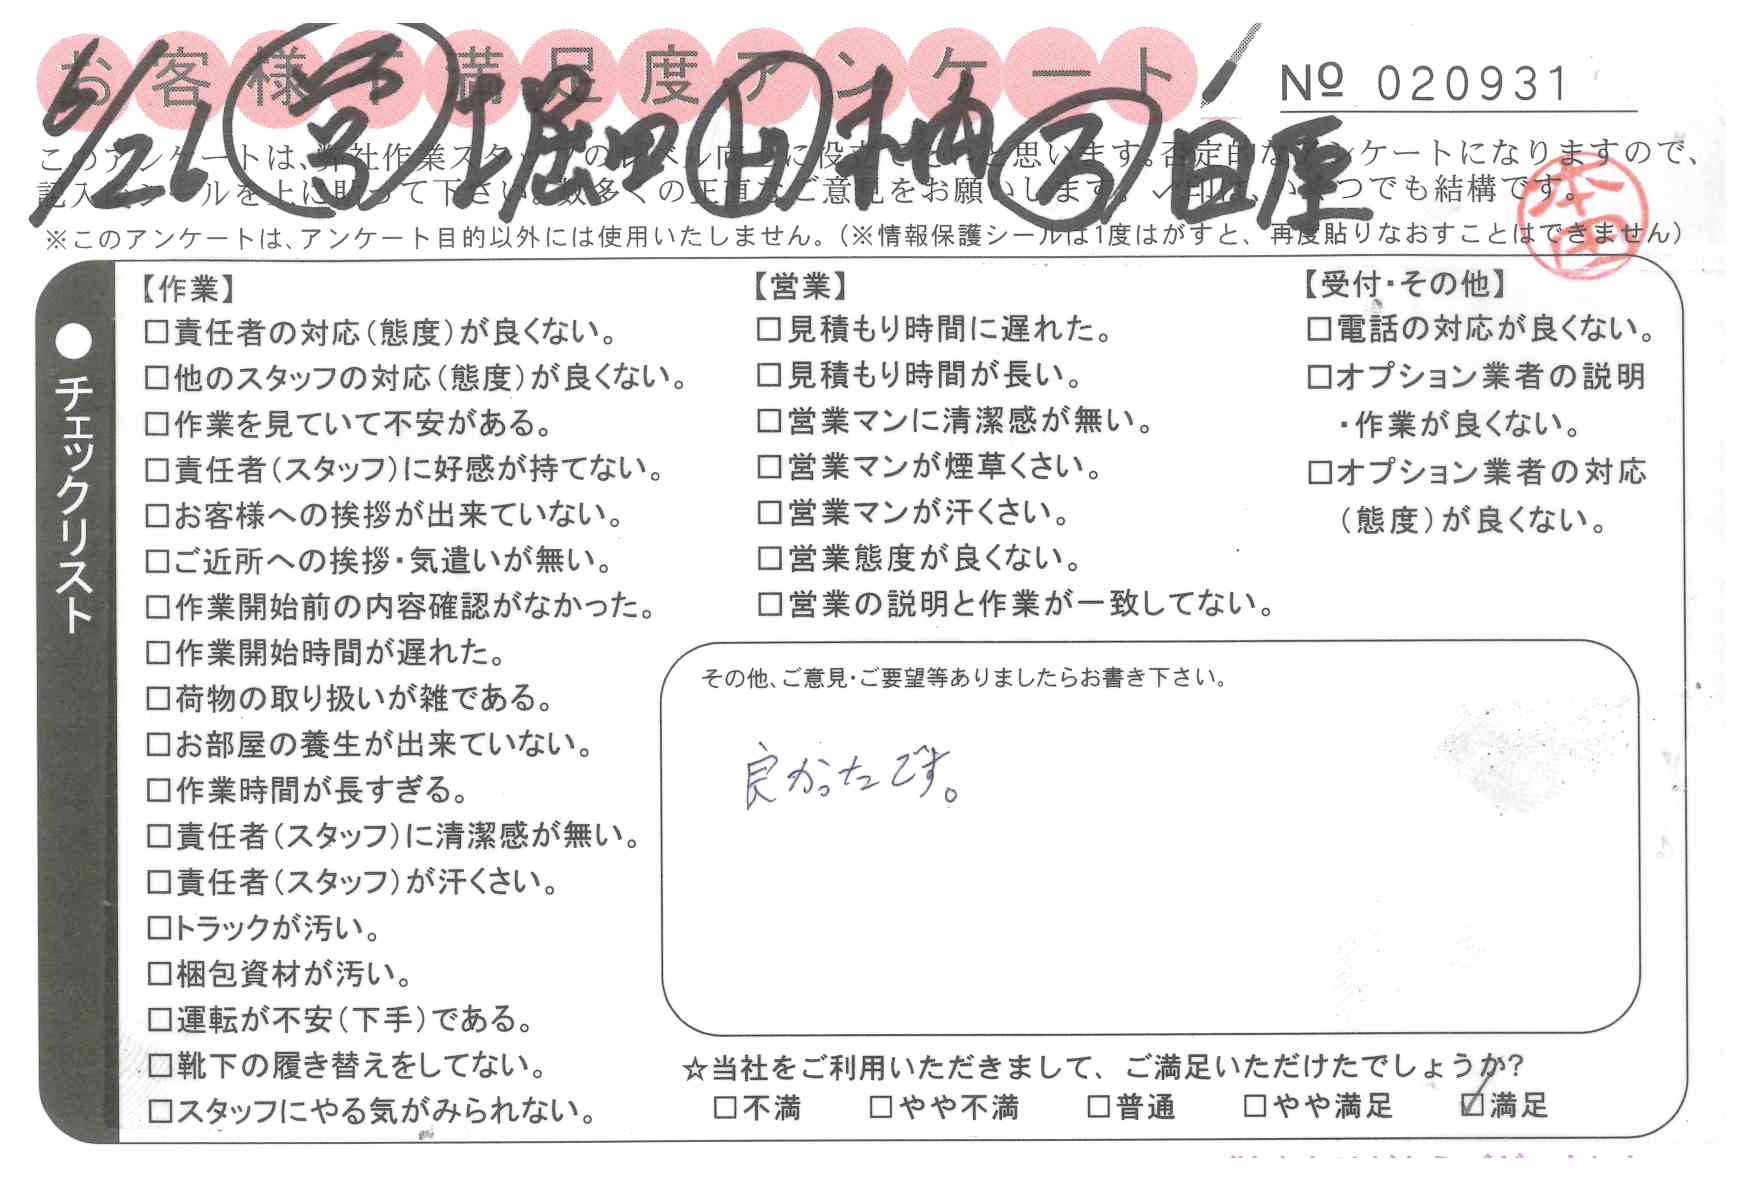 お客様ご満足度アンケート
№ 020931
6/26 営 堀口 山 神 ろ 日
このアンケートは、弊社作業スタッフのレベル向上に役立てたいと思います。否定的なアンケートになりますので、
記入後シールを上に貼って下さい。数多くの正直なご意見をお願いします。✓印は、いくつでも結構です。
本田
※このアンケートは、アンケート目的以外には使用いたしません。(※情報保護シールは1度はがすと、再度貼りなおすことはできません)
●チェックリスト
【作業】
□責任者の対応(態度)が良くない。
□他のスタッフの対応(態度)が良くない。
□作業を見ていて不安がある。
□責任者(スタッフ)に好感が持てない。
□お客様への挨拶が出来ていない。
□ご近所への挨拶・気遣いが無い。
□作業開始前の内容確認がなかった。
□作業開始時間が遅れた。
□荷物の取り扱いが雑である。
□お部屋の養生が出来ていない。
□作業時間が長すぎる。
□責任者(スタッフ)に清潔感が無い。
□責任者(スタッフ)が汗くさい。
□トラックが汚い。
□梱包資材が汚い。
□運転が不安(下手)である。
□靴下の履き替えをしてない。
□スタッフにやる気がみられない。
【営業】
□見積もり時間に遅れた。
□見積もり時間が長い。
□営業マンに清潔感が無い。
□営業マンが煙草くさい。
□営業マンが汗くさい。
□営業態度が良くない。
□営業の説明と作業が一致してない。
【受付・その他】
□電話の対応が良くない。
□オプション業者の説明
・作業が良くない。
□オプション業者の対応
(態度)が良くない。
その他、ご意見・ご要望等ありましたらお書き下さい。
良かったです。
☆当社をご利用いただきまして、ご満足いただけたでしょうか?
□不満 □やや不満 □普通 □やや満足 ☑満足